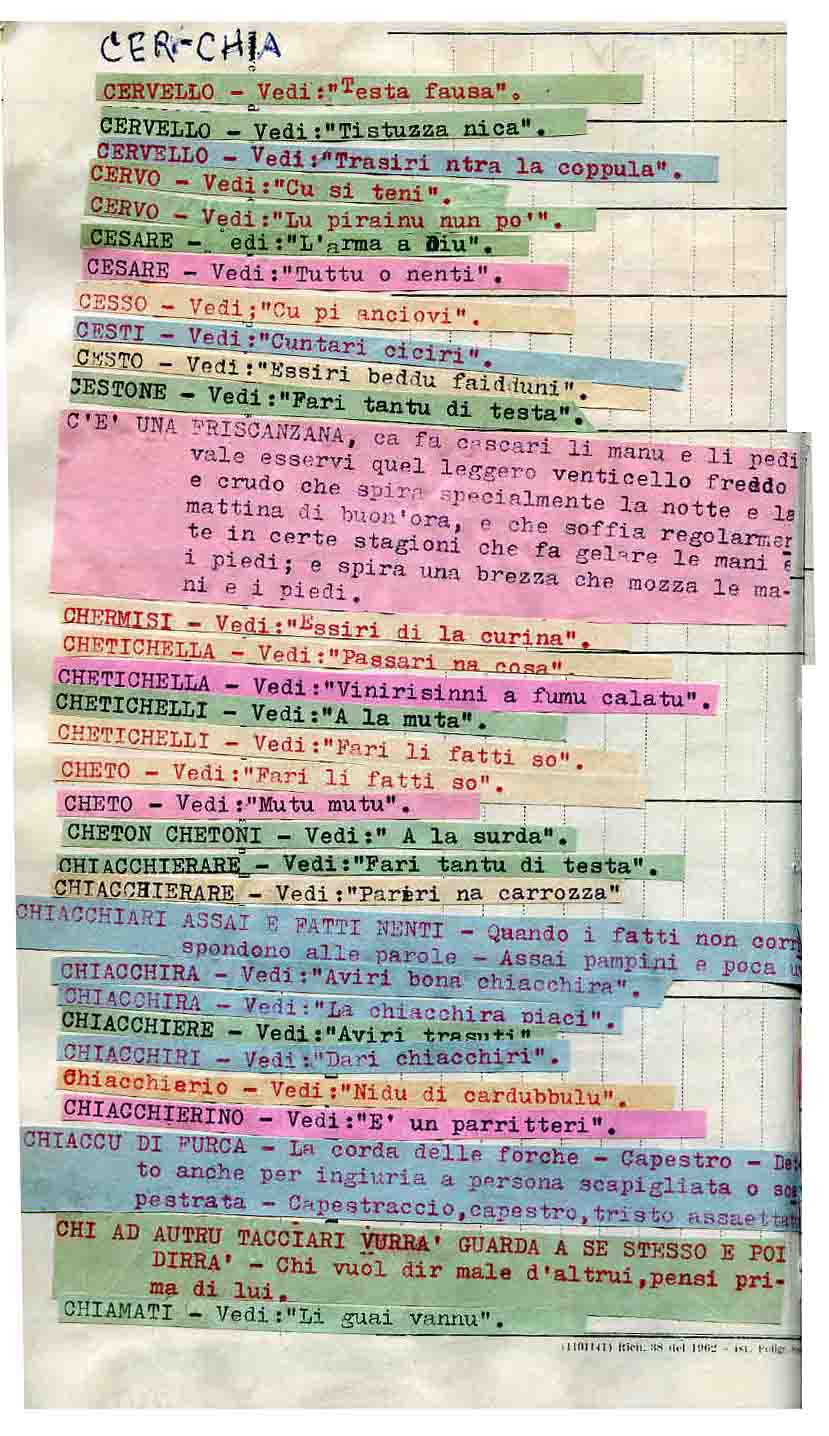 CER-CHIA
CERVELLO - Vedi:"Testa fausa".
CERVELLO - Vedi:"Tistuzza nica".
CERVELLO - Vedi:"Trasiri ntra la coppula".
CERVO - Vedi:"Cu si teni".
CERVO - Vedi:"Lu pirainu nun po'".
CESARE - edi:"L'arma a Diu".
CESARE - Vedi:"Tuttu o nenti".
CESSO - Vedi;"Cu pi anciovi".
CESTI - Vedi:"Cuntari ciciri".
CESTO - Vedi:"Essiri beddu faidduni".
CESTONE - Vedi:"Fari tantu di testa".
C'E' UNA FRISCANZANA, ca fa cascari li manu e li pedi
vale esservi quel leggero venticello freddo
e crudo che spira specialmente la notte e la
mattina di buon'ora, e che soffia regolarmen
te in certe stagioni che fa gelare le mani e
i piedi; e spira una brezza che mozza le ma-
ni e i piedi.
CHERMISI - Vedi:"Essiri di la curina".
CHETICHELLA - Vedi:"Passari na cosa"
CHETICHELLA - Vedi:"Vinirisinni a fumu calatu".
CHETICHELLI - Vedi:"A la muta".
CHETICHELLI - Vedi:"Fari li fatti so".
CHETO - Vedi:"Fari li fatti so".
CHETO - Vedi:"Mutu mutu".
CHETON CHETONI - Vedi:" A la surda".
CHIACCHIERARE - Vedi:"Fari tantu di testa".
CHIACCHIERARE - Vedi:"Pariri na carrozza"
CHIACCHIARI ASSAI E FATTI NENTI - Quando i fatti non corr
spondono alle parole - Assai pampini e poca
CHIACCHIRA - Vedi:"Aviri bona chiacchira".
CHIACCHIRA - Vedi:"La chiacchira piaci".
CHIACCHIERE - Vedi:"Aviri trasuti"
CHIACCHIRI - Vedi:"Dari chiacchiri".
Chiacchierio - Vedi:"Nidu di cardubbulu".
CHIACCHIERINO - Vedi:"E' un parritteri".
CHIACCU DI FURCA - La corda delle forche - Capestro - Det
to anche per ingiuria a persona scapigliata o sca
pestrata - Capestraccio,capestro,tristo assaettat
CHI AD AUTRU TACCIARI VURRA' GUARDA A SE STESSO E POI
DIRRA' - Chi vuol dir male d'altrui,pensi pri-
ma di lui.
CHIAMATI - Vedi:"Li guai vannu".
(1101141) Rich. 38 del 1962 - Ist. Poligr.